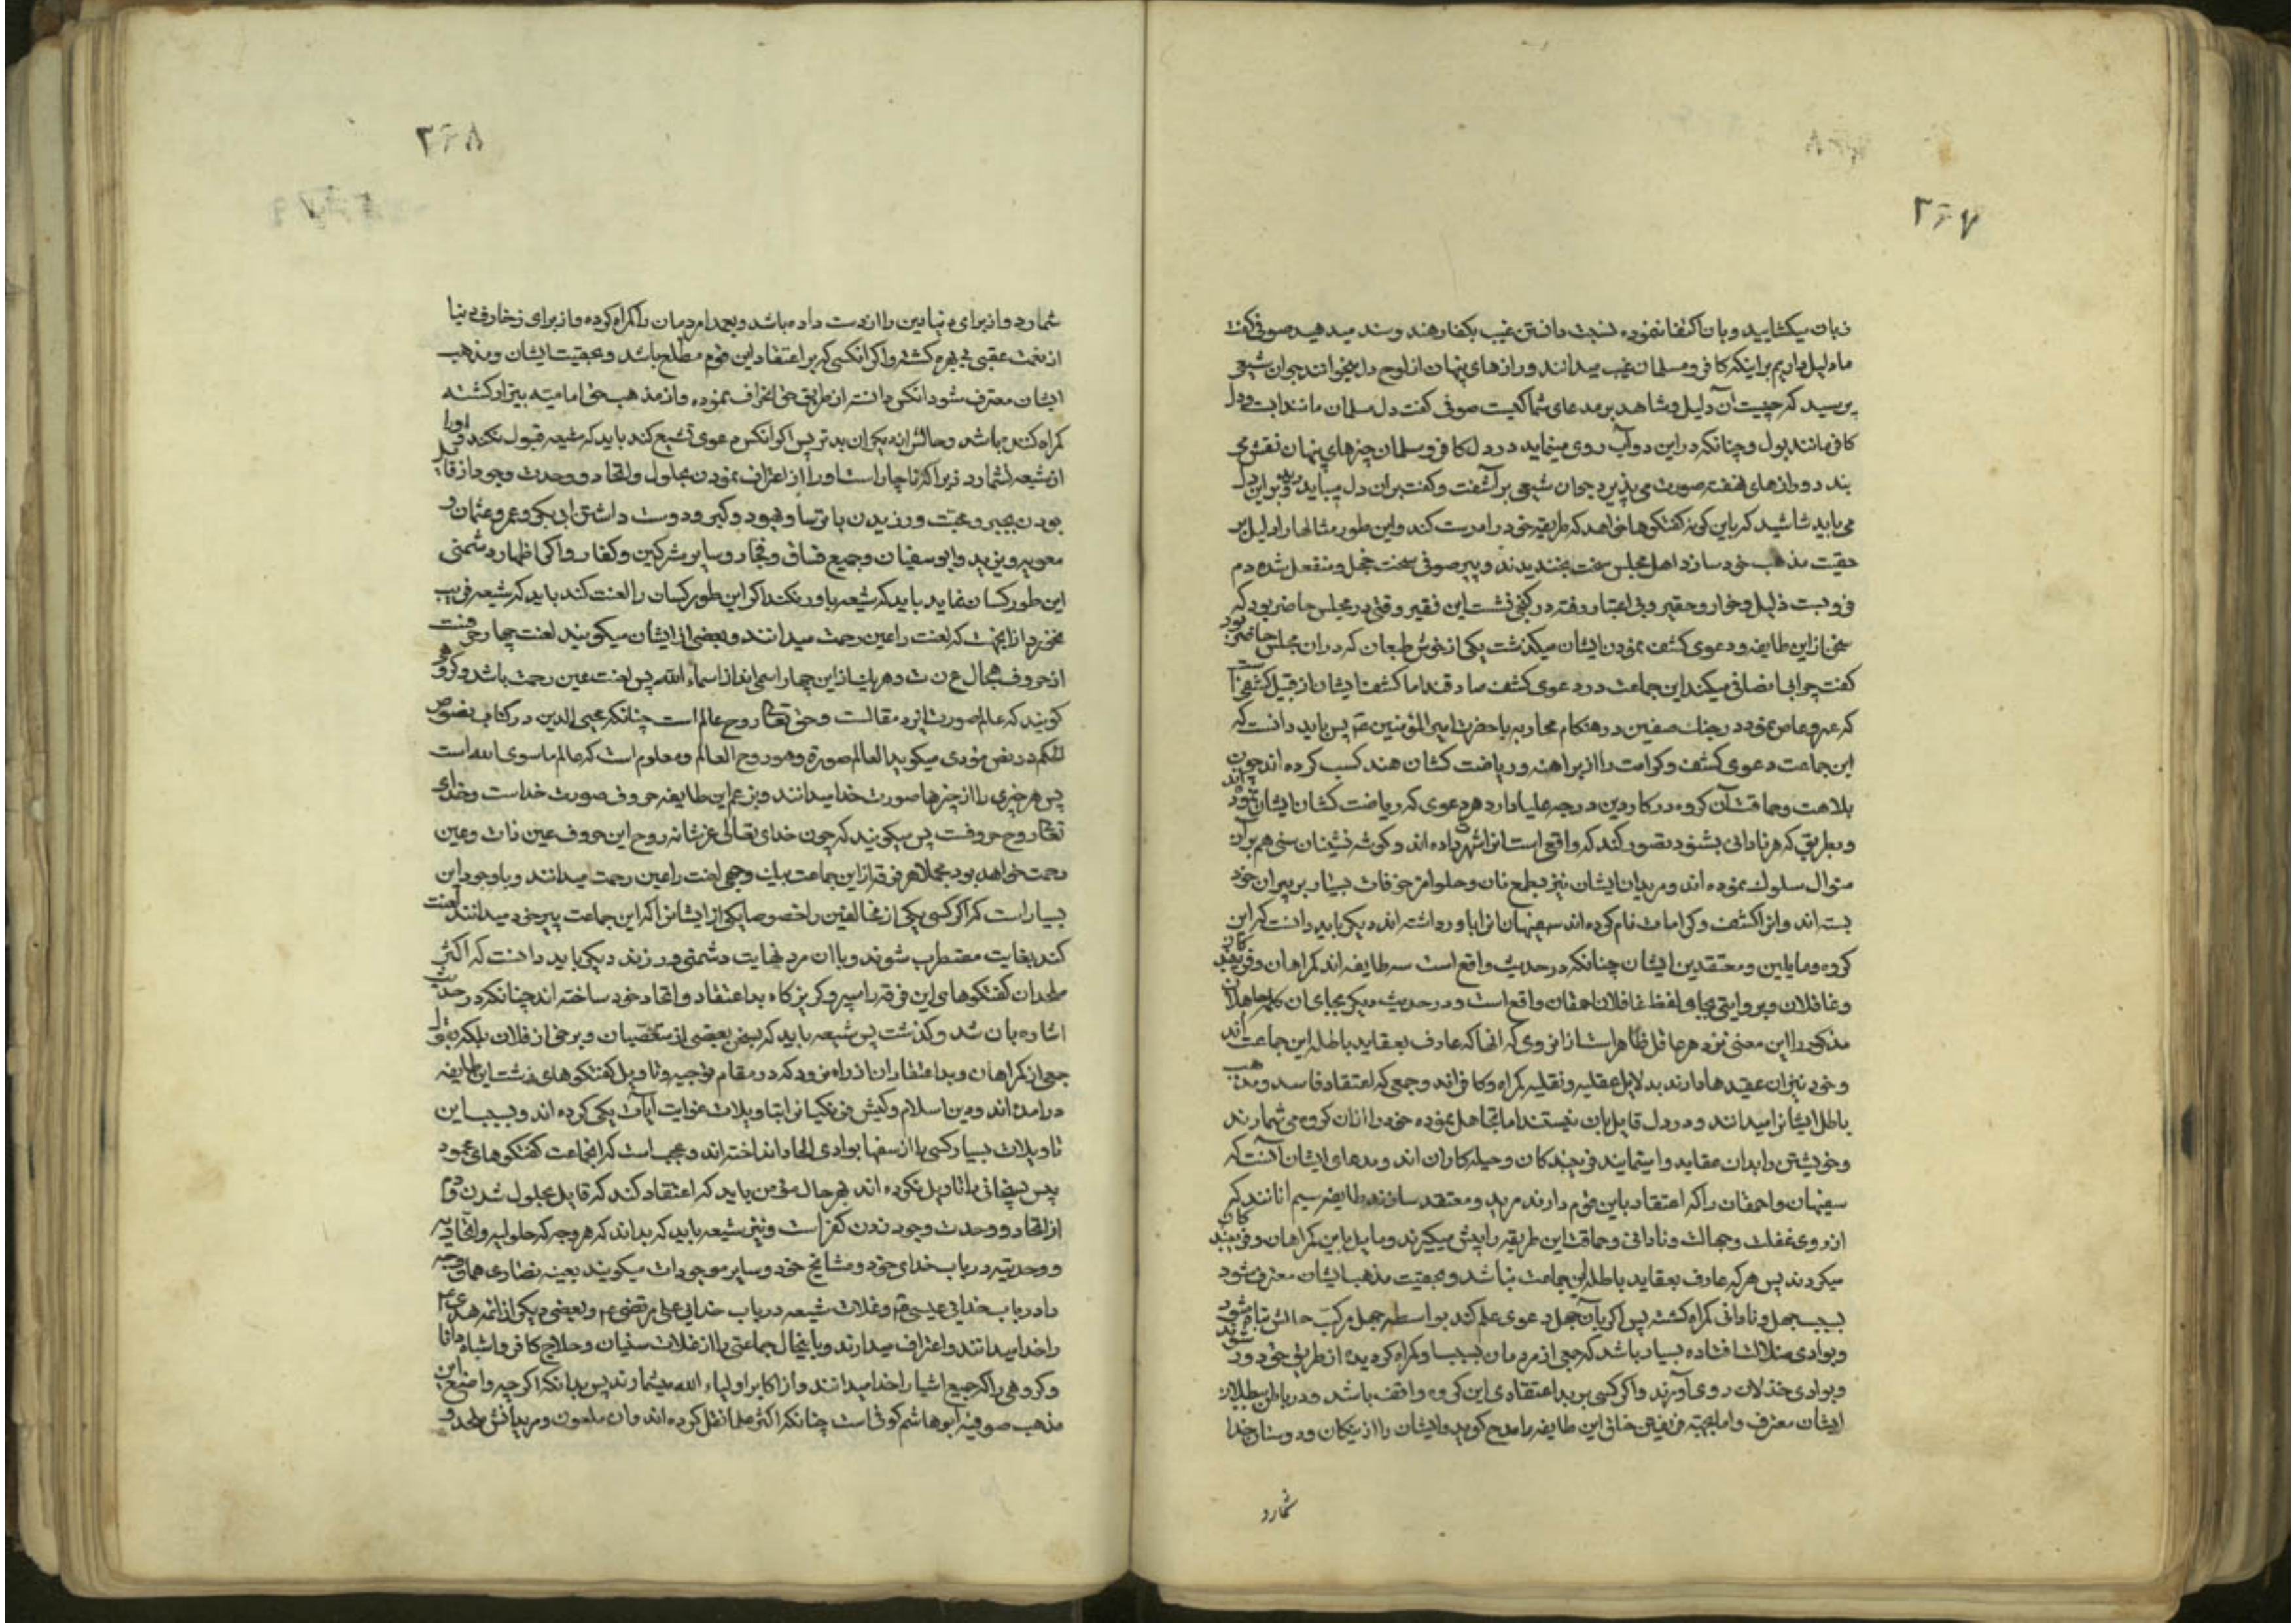 ۳۶۷
زبان میکشایید و بان اکتفا ننموده نسبت دانستن غیب بکفار هند و سند میدهید صوفی گفت
ما دلیل داریم بر اینکه کافر و مسلمان غیب میدانند و رازهای پنهان از لوح دل میخوانند جوان شیعی
پرسید که چیست آن دلیل و شاهد بر مدعای شما کیست صوفی کفت دل مسلمان مانند ابست و دل
کافر مانند بول و چنانکه در این دو آب روی مینماید در دل کافر و مسلمان چیزهای پنهان نقش می
بندد و رازهای نهفته صورت می پذیرد جوان شیعی بر آشفت و کفت بران دل میباید رید و بر این دل
می باید شاشید که باین کونه کفتکوها خواهد که طریقه خود را درست کند و این طور مثالها را دلیل بر
حقیت مذهب خود سازد اهل مجلس سخت بخندیدند و پیر صوفی سخت خجل و منفعل شده دم
فرو بست ذلیل و خوار و حقیر و بی اعتبار رفته در کنجی نشست این فقیر وقتی در مجلس حاضر بود که
سخن از این طایفه و دعوی کشف نمودن ایشان میکذشت یکی از خوش طبعان که در ان مجلس حاضر بود
کفت چرا بی انصافی میکنید این جماعت در دعوی کشف صادقند اما کشف ایشان از قبیل کشفی است
که عمرو عاص نمود در جنك صفین در هنکام محاربه با حضرت امیر المؤمنین ع پس باید دانست که
این جماعت دعوی کشف و کرامت را از براهمه و ریاضت کشان هند کسب کرده اند چون
بلاهت و حماقت آن کروه در کار دین درجه علیا دارد هر دعوی که ریاضت کشان ایشان نموده اند
و بطریقی که هر نادانی بشنود تصور کند که واقع است انرا شهرت داده اند و کوشه نشینان سنی هم بر آن
منوال سلوك نموده اند و مریدان ایشان نیز بطمع نان و حلوا مزخرفات بسیار بر پیران خود
بسته اند و انرا کشف و کرامات نام کرده اند سفیهان انرا باور داشته اند دیکر باید دانست که این
کروه و مایلین و معتقدین ایشان چنانکه در حدیث واقع است سه طایفه اند کمراهان و فریبندکان
و غافلان و بروایتی بجای لفظ غافلان احمقان واقع است و در حدیث دیکر بجای ان کلمه جاهلان
مذکور را این معنی نزد هر عاقل ظاهر است از انروی که انها که عارف بعقاید باطله این جماعت اند
و خود نیز ان عقیدها دارند بدلایل عقلیه و نقلیه کمراه و کافراند و جمعی که اعتقاد فاسد و مذهب
باطل ایشانرا میدانند و در دل قایل بان نیستند اما تجاهل نموده خود را از ان کروه می شمارند
و خویشتن را بدان عقاید وا مینمایند فریبندکان و حیله کاران اند و مدعای ایشان آنست که
سفیهان و احمقان را که اعتقاد باین قوم دارند مرید و معتقد سازند طایفه سیم انانند که
از روی غفلت و جهالت و نادانی و حماقت این طریقه را پیش میکیرند و مایل باین کمراهان و فریبندکان
میکردند پس هر که عارف بعقاید باطله این جماعت نباشد و بحقیت مذهب ایشان معترف شود
بسبب جهل و نادانی کمراه کشته پس اکر با آن جهل دعوی علم کند بواسطه جهل مرکب حالش تباه شود
و بوادی ضلالت افتاده بسیار باشد که جمعی از مردمان بسبب او کمراه کردیده از طریق حق دور شوند
و بوادی خذلان روی آورند و اکر کسی بر بد اعتقادی این کروه واقف باشد و در باطن ببطلان
ایشان معترف و اما بجهة فریفتن خلق این طایفه را مدح کوید و ایشان را از نیکان و دوستان خدا
شمارد
۳۶۸
شمارد و از برای دنیا دین را از دست داده باشد و بعمدا مردمان را کمراه کرده و از برای زخارف دنیا
از نعمت عقبی بی بهره کشته و اکر انکسی که بر اعتقاد این قوم مطلع باشد و بحقیت ایشان و مذهب
ایشان معترف شود انکس دانسته از طریق حق انحراف نموده و از مذهب حق امامیه بیزار کشته
کمراه کننده باشد و حالش از دیکران بدتر پس اکر انکس دعوی تشیع کند باید که شیعه قبول نکند و او را
از شیعه نشمارد زیرا که ناچار است او را از اعتراف نمودن بحلول و اتحاد و وحدت وجود از قایل
بودن بجبر و محبت ورزیدن با ترسا و یهود و کبر و دوست داشتن ابی بکر و عمر و عثمان و
معویه و یزید و ابو سفیان و جمیع فساق و فجار و سایر مشرکین و کفار و اکر اظهار دشمنی
این طور کسان نماید باید که شیعه باور نکند اکر این طور کسان را لعنت کند باید که شیعه فریب
نخورد از اینجهت که لعنت را عین رحمت میدانند و بعضی از ایشان میکویند لعنت چهار حرفست
از حروف تهجی ل ع ن ت و هر یك از این چهار اسمی اند از اسماء الله پس لعنت عین رحمت باشد و کروهی
کویند که عالم صورت ایزد متعالست و حق تعالی روح عالم است چنانکه محیی الدین در کتاب فصوص
الحکم در فص هودی میکوید العالم صورة وهو روح العالم و معلوم است که عالم ما سوی الله است
پس هر چیزی را از چیزها صورت خدا میدانند و بزعم این طایفه حروف صورت خداست و خدای
تعالی روح حروفست پس میکویند که چون خدای تعالی عز شانه روح این حروف عین ذات و عین
رحمت خواهد بود مجملا هر فرقه از این جماعت بیك وجهی لعنت را عین رحمت میدانند و با وجود این
بسیار است که اکر کسی یکی از مخالفین را خصوصا یکی از ایشانرا که این جماعت پیر خود میدانند لعنت
کند بغایت مضطرب شوند و با ان مرد نهایت دشمنی ورزند دیکر باید دانست که اکثر
ملحدان کفتکوهای این فرقه را سپر و کریزکاه بد اعتقاد و الحاد خود ساخته اند چنانکه در حدیث
اشاره بان شد و کذشت پس شیعه باید که بمحض بعضی از متعصبان و برخی از غلات بلکه بقول
جمعی از کمراهان و بد اعتقادان از راه نرود که در مقام توجیه و تاویل کفتکوهای زشت این طایفه
درامده اند و دین اسلام و کیش فرنکیانرا بتاویلات غوایت آیات یکی کرده اند و بسبب این
تاویلات بسیار کسی را از سفها بوادی الحاد انداخته اند و عجب است که انجماعت کفتکوهای محمود
پسیخانی را تاویل نکرده اند بهر حال مؤمن باید که اعتقاد کند که قایل بحلول شدن و دم
از اتحاد و وحدت وجود زدن کفر است و نیز شیعه باید که بداند که هر وجه که حلولیه و اتحادیه
و وحدتیه در باب خدای خود و مشایخ خود و سایر موجودات میکویند بعینه نصاری همان وجه
را در باب خدائی عیسی ع و غلات شیعه در باب خدایی علی مرتضی ع و بعضی دیکر از ائمه هدی ع
را خدا میدانند و اعتراف میدارند و با اینحال جماعتی را از غلات سنیان و حلاج کافر و اشباه او را
و کروهی را که جمیع اشیا را خدا میدانند و از اکابر اولیاء الله میشمارند پس بدانکه اکر چه واضع این
مذهب صوفیه ابو هاشم کوفی است چنانکه اکثر علما نقل کرده اند و ان ملعون و مریدانش ملحد و